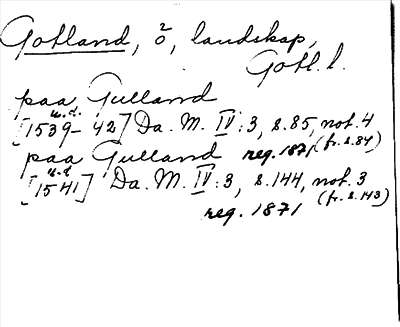 Gotland, ö, landskap,
Gotl. l.
paa Gulland
u.d.
[1539-42] Da. M. IV:3, s.85, not.4
(fr. s.84)
paa Gulland reg. 1871
u.d.
[1541] Da. M. IV:3, s.144, not.3
(fr. s.143)
reg. 1871